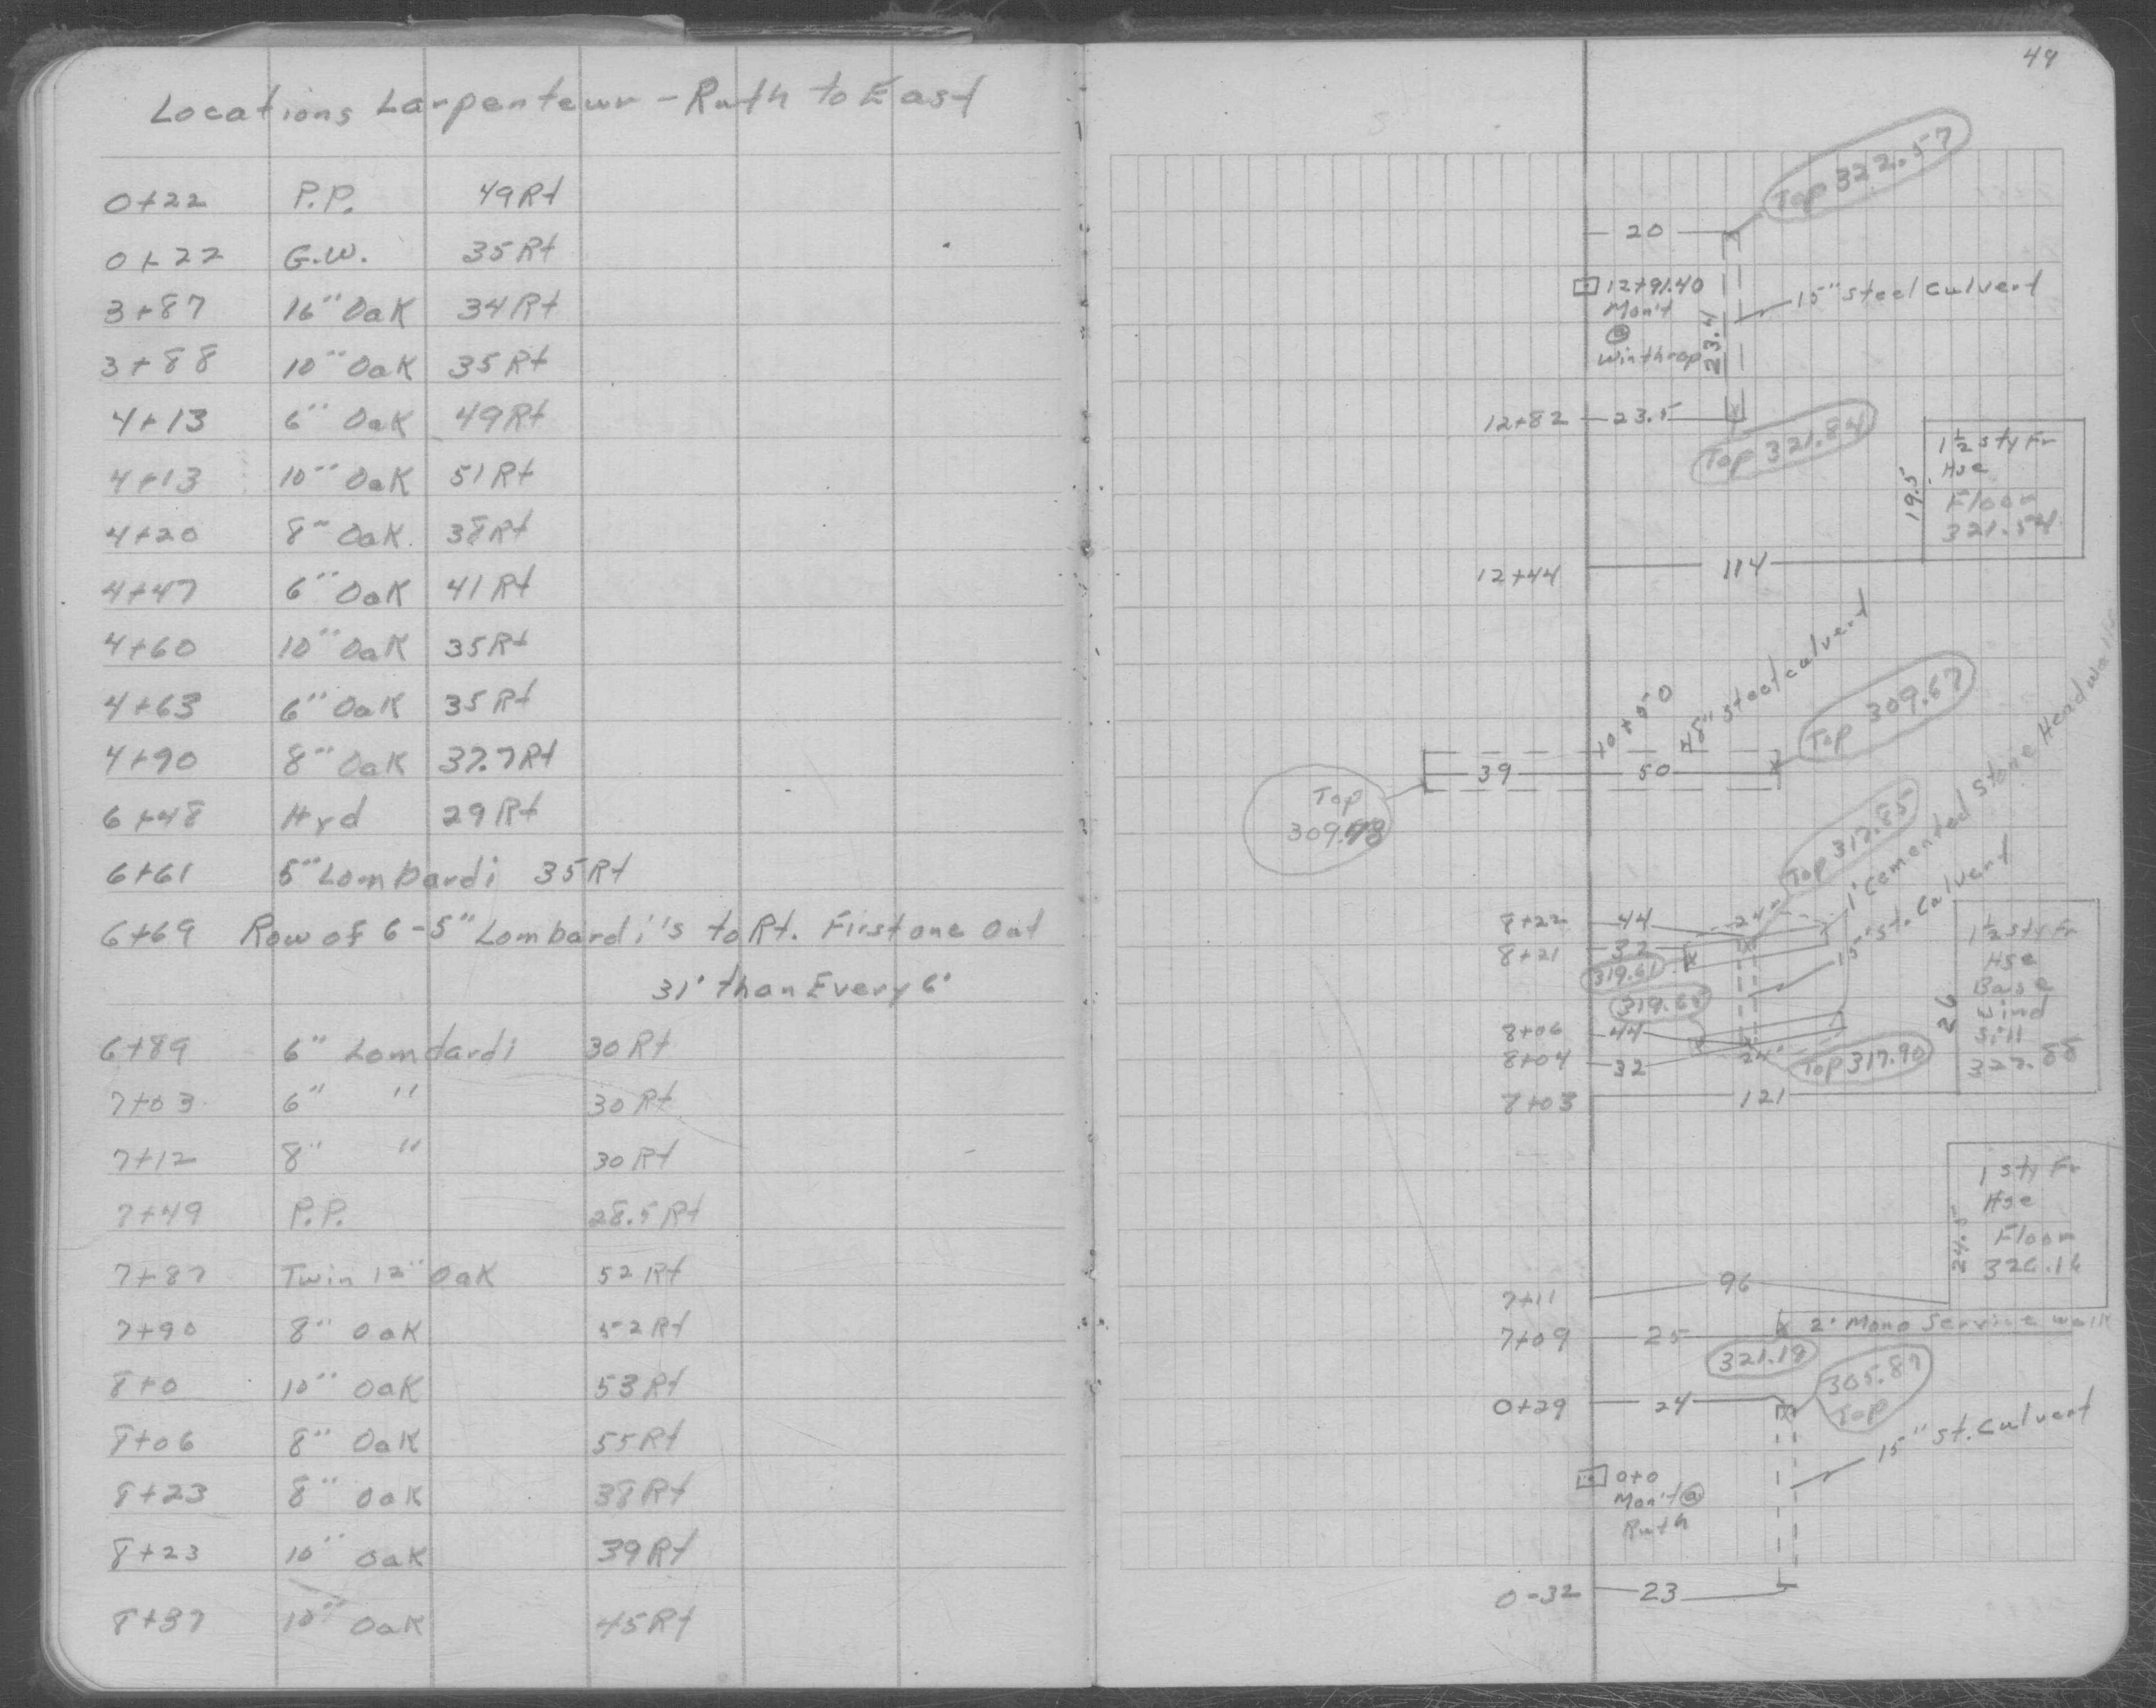 Locations Larpenteur - Ruth to East
0+22 P.P. 49 Rt
0+22 G.W. 35 Rt
3+87 16" Oak 34 Rt
3+88 10" Oak 35 Rt
4+13 6" Oak 49 Rt
4+13 10" Oak 51 Rt
4+20 8" Oak 38 Rt
4+47 6" Oak 41 Rt
4+60 10" Oak 35 Rt
4+63 6" Oak 35 Rt
4+90 8" Oak 37.7 Rt
6+48 Hyd 29 Rt
6+61 5" Lombardi 35 Rt
6+69 Row of 6-5" Lombardi's to Rt. First one Out
31' than Every 6'
6+89 6" Lombardi 30 Rt
7+03 6" " 30 Rt
7+12 8" " 30 Rt
7+49 P.P. 28.5 Rt
7+87 Twin 12" Oak 52 Rt
7+90 8" Oak 52 Rt
8+0 10" Oak 53 Rt
8+06 8" Oak 55 Rt
8+23 8" Oak 38 Rt
8+23 10" Oak 39 Rt
8+37 10" Oak 45 Rt
Top 322.57
20
12+91.40
Mon't
@
Winthrop
23.4
15" steel culvert
12+82 23.5
Top 321.84
1½ sty Fr
Hse
Floor
321.54
19.5
12+44 114
10+50
48" steel culvert
Top 309.67
39 50
Top
Top 317.85
1' Cemented stone Headwalls
15" st. Culvert
8+22 44 24"
8+21 32
319.61
319.65
8+06 44
8+04 32 24"
Top 317.90
8+03 121
26
1½ sty Fr
Hse
Base
Wind
Sill
327.88
1 sty Fr
Hse
Floor
326.16
24.5
7+11 96
7+09 25 2' Mono Service walk
321.19
0+29 24
305.87
Top
15" st. Culvert
0+0
Mon't @
Ruth
0-32 23